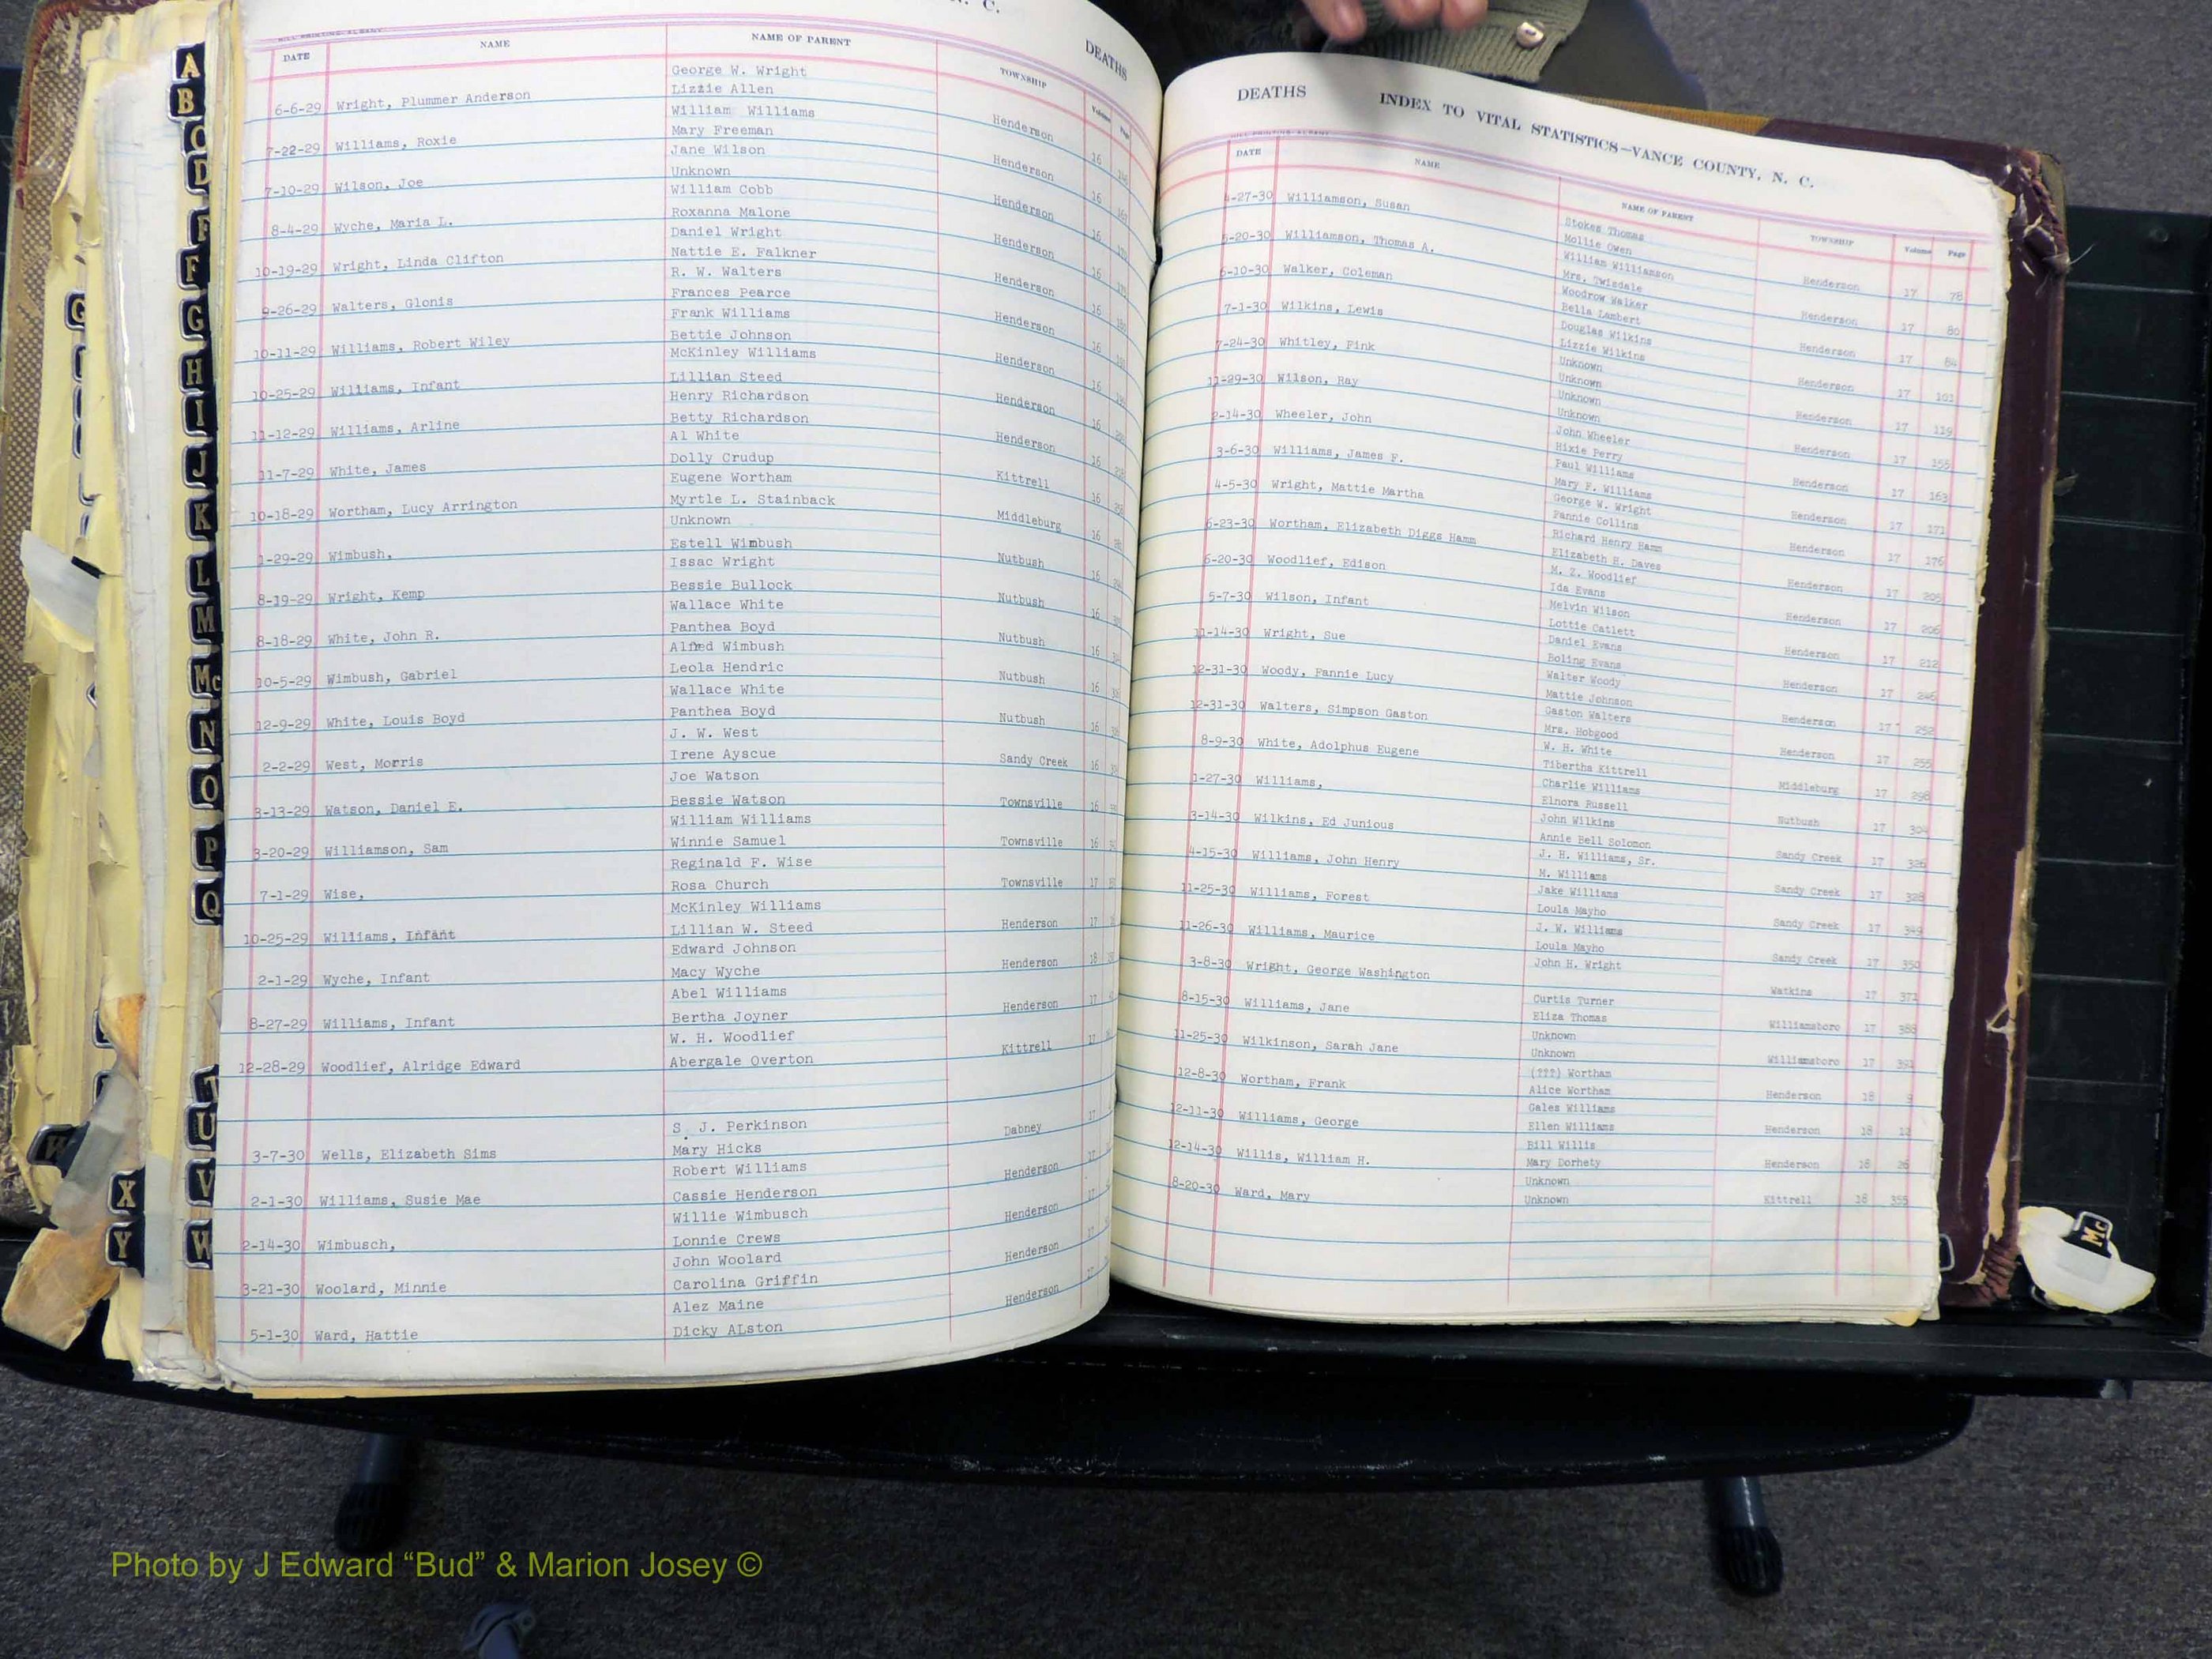 N. C.
DEATHS
DATE NAME NAME OF PARENT TOWNSHIP Volume Page
George W. Wright
6-6-29 Wright, Plummer Anderson Lizzie Allen Henderson 16
William Williams
7-22-29 Williams, Roxie Mary Freeman Henderson 16
Jane Wilson
7-10-29 Wilson, Joe Unknown Henderson 16
William Cobb
8-4-29 Wyche, Maria L. Roxanna Malone Henderson 16
Daniel Wright
10-19-29 Wright, Linda Clifton Nattie E. Falkner Henderson 16
R. W. Walters
9-26-29 Walters, Glonis Frances Pearce Henderson 16
Frank Williams
10-11-29 Williams, Robert Wiley Bettie Johnson Henderson 16
McKinley Williams
10-25-29 Williams, Infant Lillian Steed Henderson 16
Henry Richardson
11-12-29 Williams, Arline Betty Richardson Henderson 16
Al White
11-7-29 White, James Dolly Crudup Kittrell 16
Eugene Wortham
10-18-29 Wortham, Lucy Arrington Myrtle L. Stainback Middleburg 16
Unknown
1-29-29 Wimbush, Estell Wimbush Nutbush 16
Issac Wright
8-19-29 Wright, Kemp Bessie Bullock Nutbush 16
Wallace White
8-18-29 White, John R. Panthea Boyd Nutbush 16
Alfred Wimbush
10-5-29 Wimbush, Gabriel Leola Hendric Nutbush 16
Wallace White
12-9-29 White, Louis Boyd Panthea Boyd Nutbush 16
J. W. West
2-2-29 West, Morris Irene Ayscue Sandy Creek 16
Joe Watson
3-13-29 Watson, Daniel E. Bessie Watson Townsville 16
William Williams
3-20-29 Williamson, Sam Winnie Samuel Townsville 16
Reginald F. Wise
7-1-29 Wise, Rosa Church Townsville 17
McKinley Williams
10-25-29 Williams, Infant Lillian W. Steed Henderson 17
Edward Johnson
2-1-29 Wyche, Infant Macy Wyche Henderson 18
Abel Williams
8-27-29 Williams, Infant Bertha Joyner Henderson 17
W. H. Woodlief
12-28-29 Woodlief, Alridge Edward Abergale Overton Kittrell 17
S. J. Perkinson
3-7-30 Wells, Elizabeth Sims Mary Hicks Dabney 17
Robert Williams
2-1-30 Williams, Susie Mae Cassie Henderson Henderson 17
Willie Wimbusch
2-14-30 Wimbusch, Lonnie Crews Henderson 17
John Woolard
3-21-30 Woolard, Minnie Carolina Griffin Henderson 17
Alez Maine
5-1-30 Ward, Hattie Dicky ALston Henderson 17
DEATHS INDEX TO VITAL STATISTICS—VANCE COUNTY, N. C.
DATE NAME NAME OF PARENT TOWNSHIP Volume Page
Stokes Thomas
4-27-30 Williamson, Susan Mollie Owen Henderson 17 78
William Williamson
5-20-30 Williamson, Thomas A. Mrs. Twisdale Henderson 17 80
Woodrow Walker
6-10-30 Walker, Coleman Bella Lambert Henderson 17 84
Douglas Wilkins
7-1-30 Wilkins, Lewis Lizzie Wilkins Henderson 17 101
Unknown
7-24-30 Whitley, Pink Unknown Henderson 17 119
Unknown
11-29-30 Wilson, Ray Unknown Henderson 17 155
John Wheeler
2-14-30 Wheeler, John Hixie Perry Henderson 17 163
Paul Williams
3-6-30 Williams, James F. Mary F. Williams Henderson 17 171
George W. Wright
4-5-30 Wright, Mattie Martha Fannie Collins Henderson 17 176
Richard Henry Hamm
6-23-30 Wortham, Elizabeth Diggs Hamm Elizabeth H. Daves Henderson 17 205
M. Z. Woodlief
6-20-30 Woodlief, Edison Ida Evans Henderson 17 206
Melvin Wilson
5-7-30 Wilson, Infant Lottie Catlett Henderson 17 212
Daniel Evans
11-14-30 Wright, Sue Boling Evans Henderson 17 246
Walter Woody
12-31-30 Woody, Fannie Lucy Mattie Johnson Henderson 17 252
Gaston Walters
12-31-30 Walters, Simpson Gaston Mrs. Hobgood Henderson 17 255
W. H. White
8-9-30 White, Adolphus Eugene Tibertha Kittrell Middleburg 17 298
Charlie Williams
1-27-30 Williams, Elnora Russell Nutbush 17 304
John Wilkins
3-14-30 Wilkins, Ed Junious Annie Bell Solomon Sandy Creek 17 326
J. H. Williams, Sr.
4-15-30 Williams, John Henry M. Williams Sandy Creek 17 328
Jake Williams
11-25-30 Williams, Forest Loula Mayho Sandy Creek 17 349
J. W. Williams
11-26-30 Williams, Maurice Loula Mayho Sandy Creek 17 350
John H. Wright
3-8-30 Wright, George Washington Watkins 17 371
Curtis Turner
8-15-30 Williams, Jane Eliza Thomas Williamsboro 17 388
Unknown
11-25-30 Wilkinson, Sarah Jane Unknown Williamsboro 17 391
(???) Wortham
12-8-30 Wortham, Frank Alice Wortham Henderson 18 9
Gales Williams
12-11-30 Williams, George Ellen Williams Henderson 18 12
Bill Willis
12-14-30 Willis, William H. Mary Dorhety Henderson 18 26
Unknown
8-20-30 Ward, Mary Unknown Kittrell 18 355
A
B
C
D
F
G
H
I
J
K
L
M
Mc
N
O
P
Q
T
U
V
W
X
Y
G
W
Mc
Photo by J Edward “Bud” & Marion Josey ©